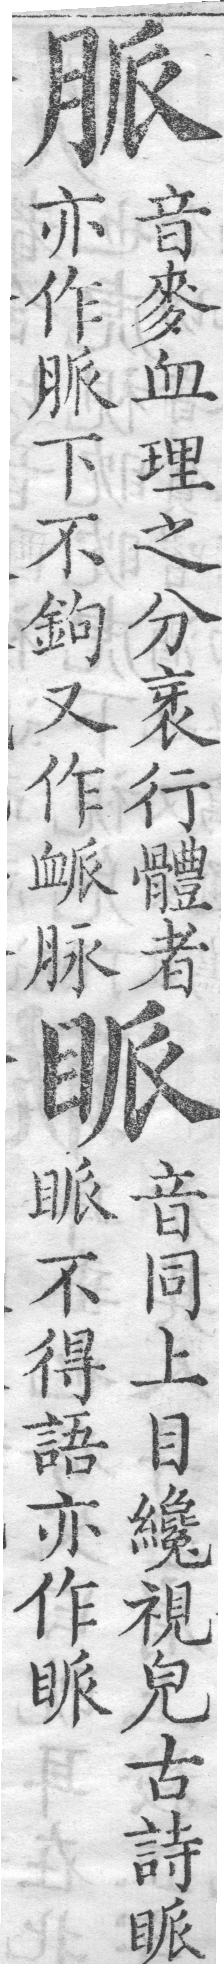 脈
音麥血理之分衺行體者
亦作脈下不鉤又作衇脉
眽
音同上目纔視皃古詩眽
眽不得語亦作眽